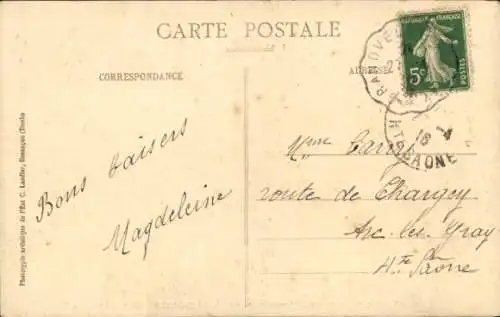 CARTE POSTALE
CORRESPONDANCE
ADRESSE
RÉPUBLIQUE FRANÇAISE
5c
POSTES
Bons baisers
Magdeleine
Mme
route de Chargey
Arc-les-Gray
Hte Saône
16
HTE SAONE
Phototypie artistique de l'Est C. Lardier, Besançon (Doubs)